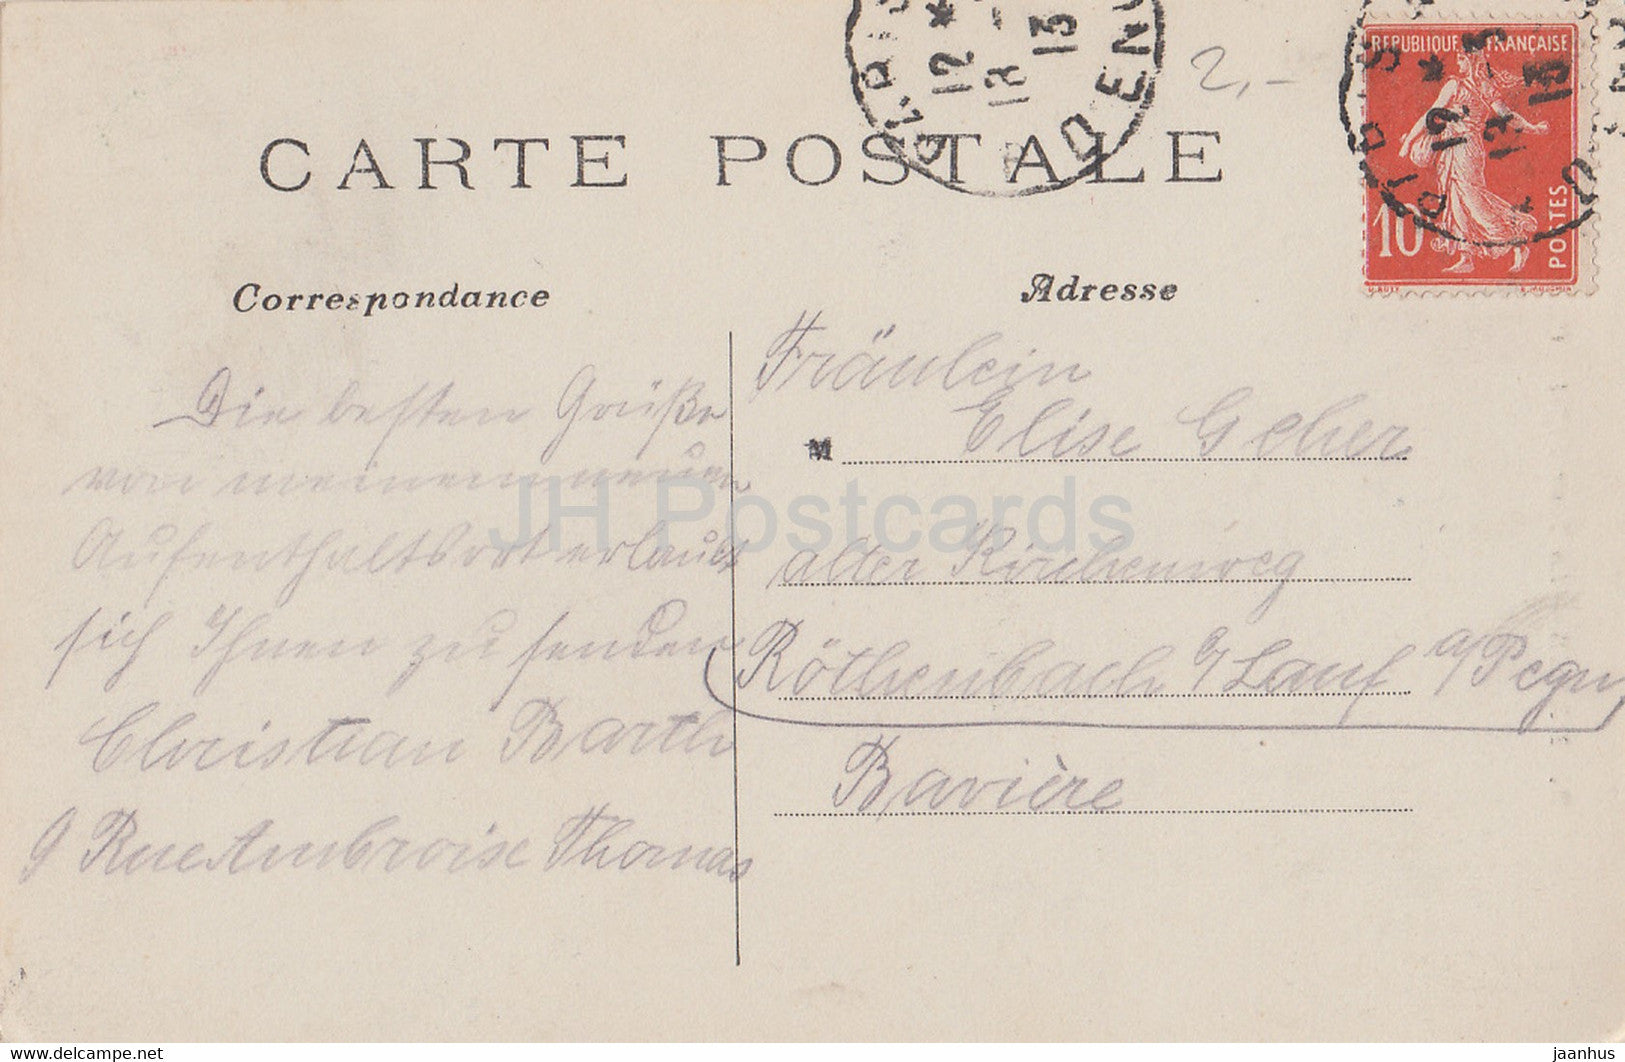 CARTE POSTALE
2,-
REPUBLIQUE FRANÇAISE
10
POSTES
12 * -3
13
12 * -3
13
Correspondance
Adresse
Die besten Grüße
von meinem neuen
Aufenthaltsort erlaubt
sich Ihnen zu senden
Christian Barth
9 Rue Ambroise Thomas
Fräulein
Elise Geher
M
alter Kirchenweg
Röthenbach b/ Lauf a/Pegn
Bavière
JH Postcards
www.delcampe.net
jaanhus